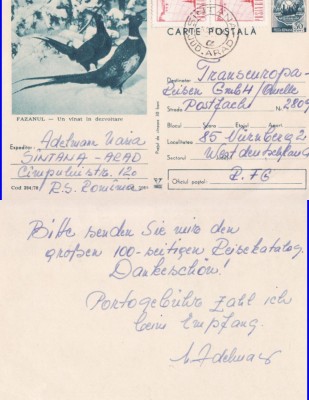 CARTE POSTALA
FAZANUL - Un vînat în dezvoltare
Expeditor: Adelman Maria
SINTANA - ARAD
Cîmpului str. 120
R.S. România
Cod 394/78
Destinatar Transeuropa-
Reisen GmbH/Quelle
Strada Postfach Nr. 2809
Blocul Scara Etajul Apart.
Localitatea 85 Nürnberg 2
Sectorul Westdeutschland
R.F.G
Oficiul poștal:
Bitte senden Sie mir den
großen 100-seitigen Reisekatalog.
Dankeschön!
Portogebühr zahl ich
beim Empfang.
Adelman